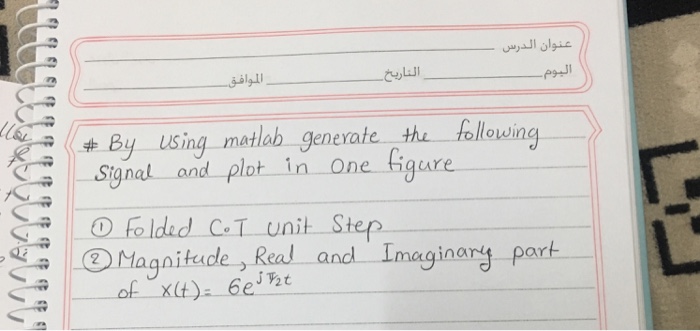 عنوان الدرس
اليوم التاريخ الموافق
# By using matlab generate the following
Signal and plot in one figure
① Folded C.T unit Step
② Magnitude, Real and Imaginary part
of x(t)= 6e^jπ/2t